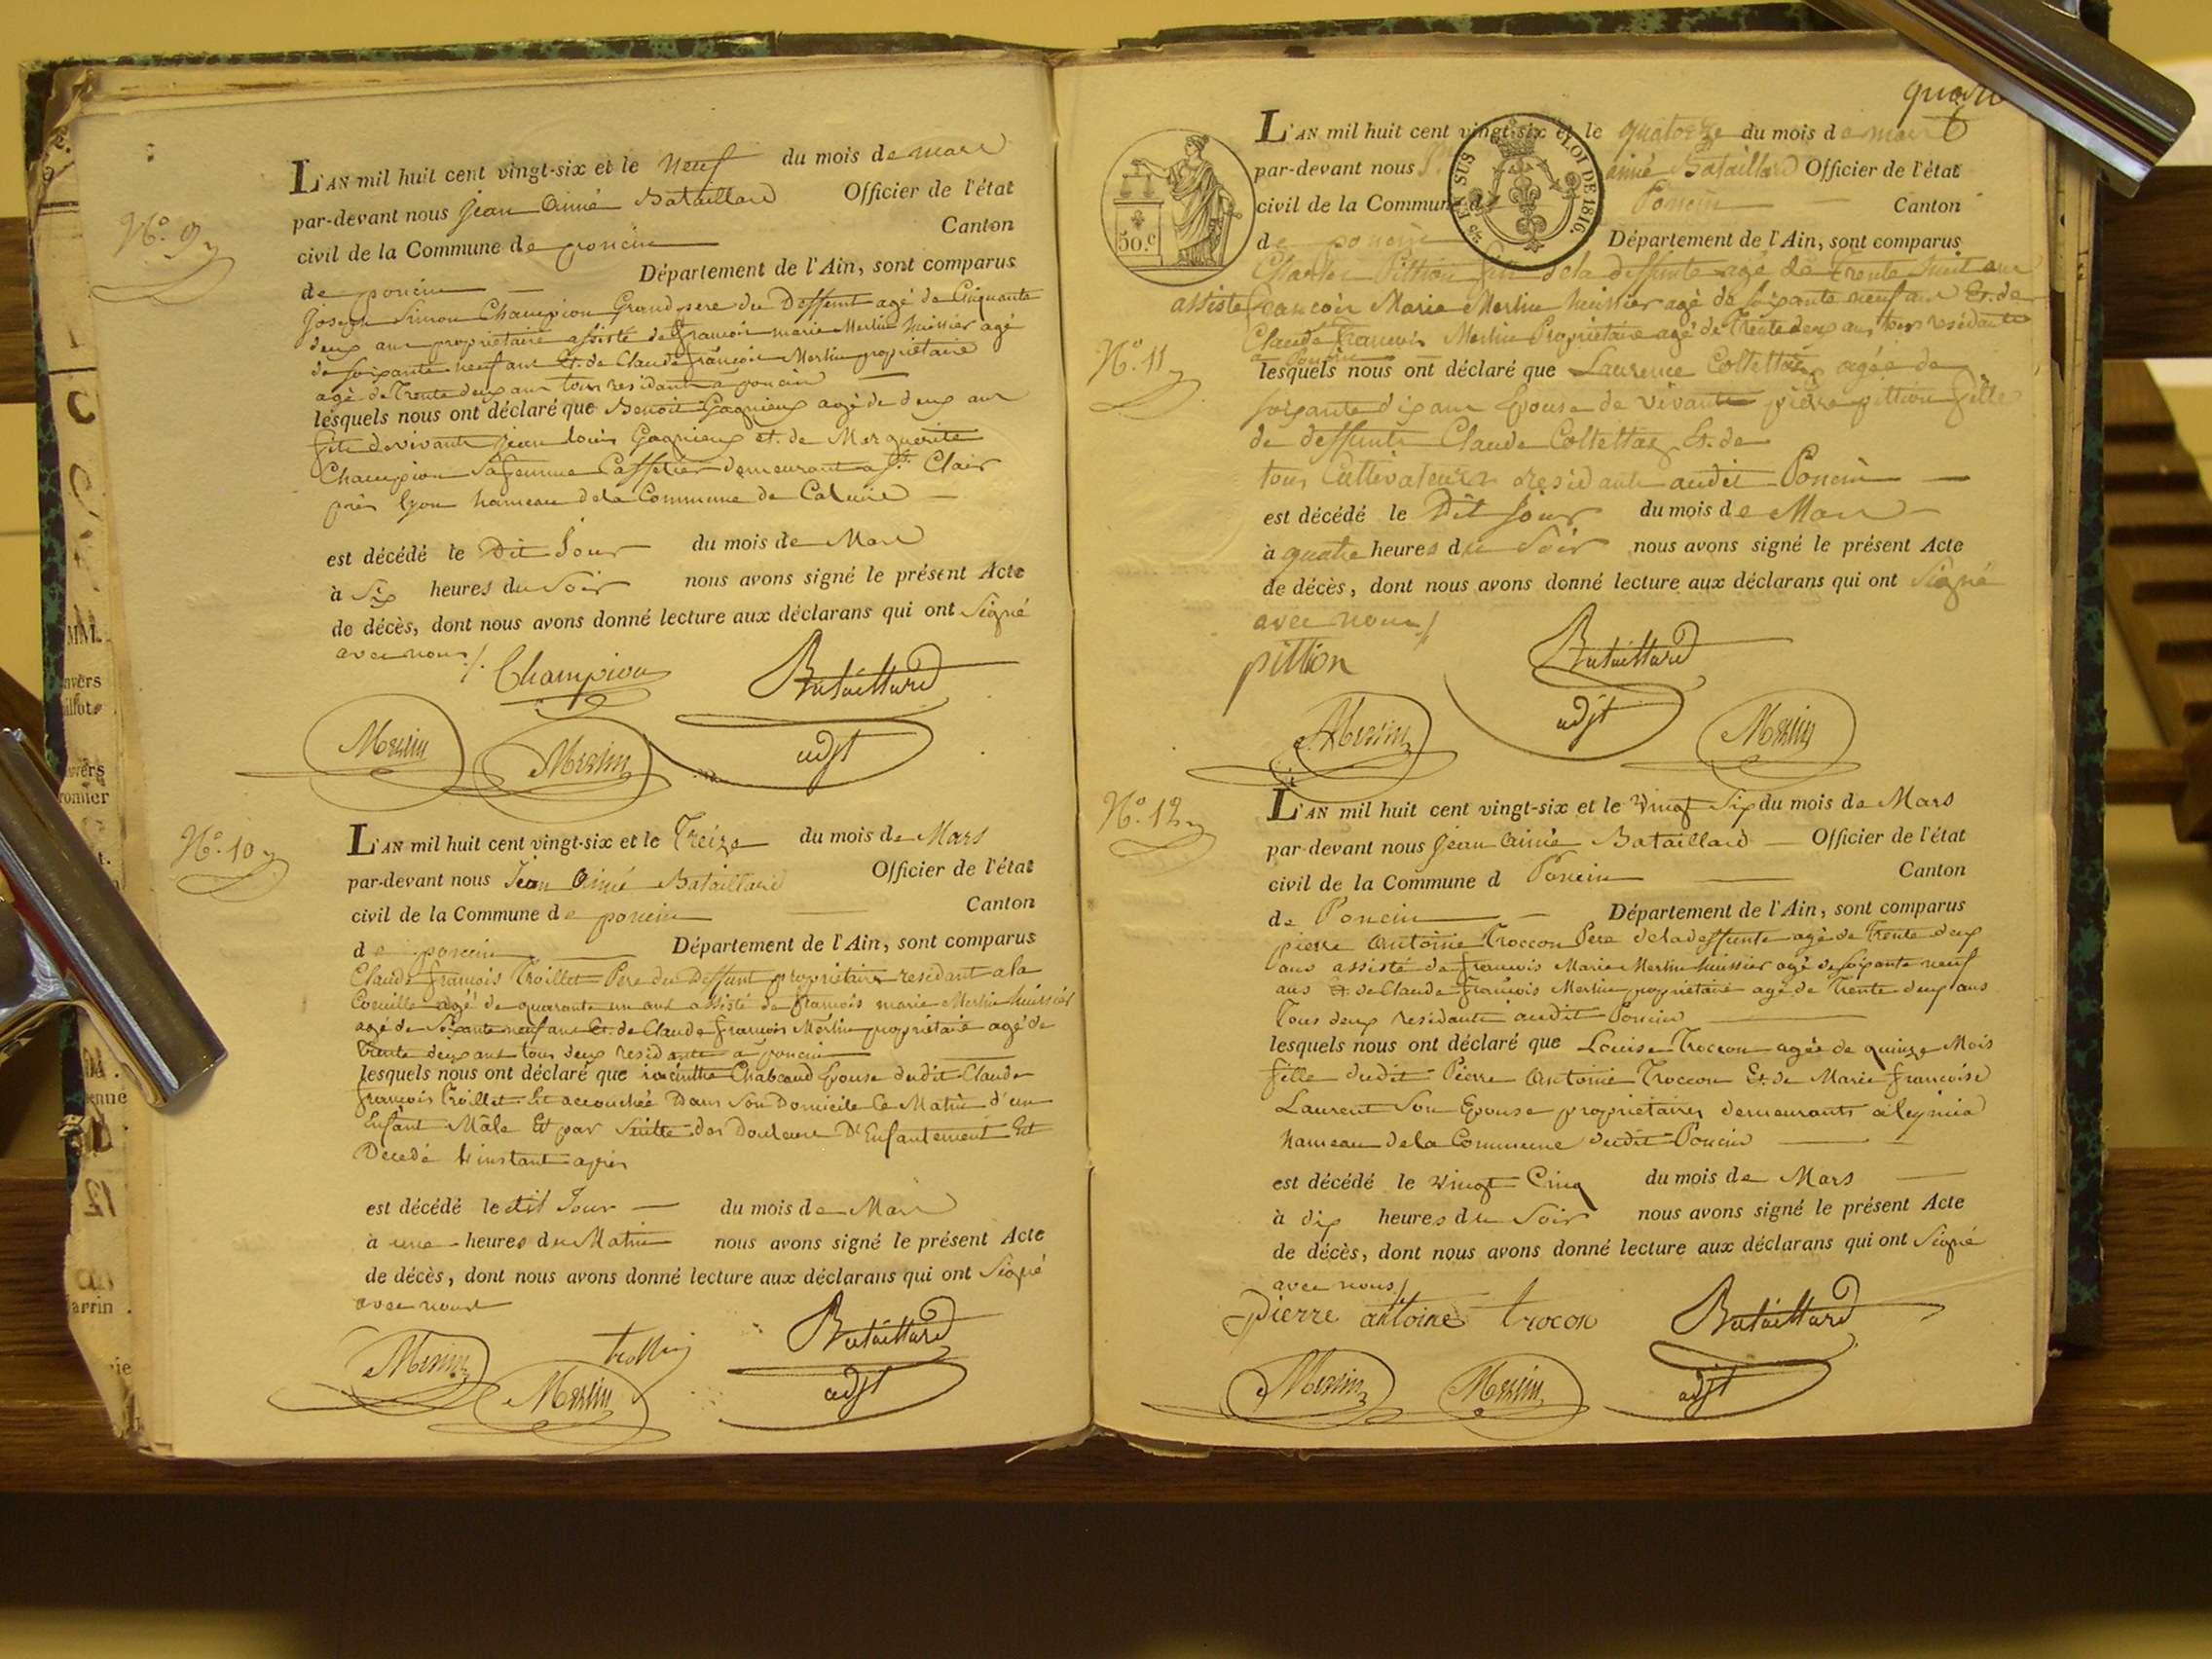 N.º 9
L'AN mil huit cent vingt-six et le neuf du mois de mars
par-devant nous Jean Aimé Bataillard Officier de l'état
civil de la Commune de poncin Canton
de poncin Département de l'Ain, sont comparus
Joseph Simon Champion Grand pere du Deffunt agé de Cinquante
deux ans propriétaire assisté de françois marie Merlin huissier agé
de soixante neuf ans Et. de Claude françois Merlin propriétaire
agé de Trente deux ans tous residants a poncin
lesquels nous ont déclaré que Benoit Gagnieux agé de deux ans
fils de vivants jean louis Gagnieux et. de Marguerite
Champion sa femme Caffetier demeurant a St. Clair
près lyon hameau de la Commune de Caluire
est décédé le Dit Jour du mois de Mars
à Six heures du Soir nous avons signé le présent Acte
de décès, dont nous avons donné lecture aux déclarans qui ont Signé
avec nous /.
Champion Bataillard
Merlin Merlin adjt
N.º 10
L'AN mil huit cent vingt-six et le Treize du mois de Mars
par-devant nous Jean Aimé Bataillard Officier de l'état
civil de la Commune de poncin Canton
de poncin Département de l'Ain, sont comparus
Claude françois Troillet Pere du Deffunt propriétaire residant a la
agé de quarante un ans assisté de françois marie Merlin huissier
agé de Soixante neuf ans Et. de Claude françois Merlin propriétaire agé de
Trente deux ans tous deux residants a poncin
lesquels nous ont déclaré que Epouse dudit Claude
françois Troillet Est accouchée Dans Son Domicile Ce Matin d'un
Enfant Mâle Et par Suitte des Douleurs D'Enfantement Est
Decedé L'instant après
est décédé le dit Jour du mois de Mars
à une heures du Matin nous avons signé le présent Acte
de décès, dont nous avons donné lecture aux déclarans qui ont Signé
avec nous
Bataillard
Merlin Merlin adjt
L'AN mil huit cent vingt-six et le quatorze du mois de mars
par-devant nous aimé Bataillard Officier de l'état
civil de la Commune de Poncin Canton
de poncin Département de l'Ain, sont comparus
50.c
EN SUS LOI DE 1816.
Charles Pittion fils de la deffunte agé de Trente huit ans
assisté francois Marie Merlin huissier agé de soixante neuf ans Et. de
Claude francois Merlin Propriétaire agé de Trente deux ans tous residants
a Poncin
N.º 11
lesquels nous ont déclaré que Laurence Collettaz agée de
soixante dix ans Epouse de vivante pierre pittion fille
de deffunts Claude Collettaz Et. de
tous Cultivateurs residants audit Poncin
est décédé le Dit Jour du mois de Mars
à quatre heures du Soir nous avons signé le présent Acte
de décès, dont nous avons donné lecture aux déclarans qui ont Signé
avec nous /
pittion Bataillard
Merlin adjt Merlin
N.º 12
L'AN mil huit cent vingt-six et le vingt Six du mois de Mars
par-devant nous Jean Aimé Bataillard Officier de l'état
civil de la Commune d Poncin Canton
de Poncin Département de l'Ain, sont comparus
pierre Antoine Troccon Pere de la deffunte agé de Trente deux
ans assisté de francois Marie Merlin huissier agé de soixante neuf
ans Et de Claude francois Merlin propriétaire agé de Trente deux ans
Tous deux residants audit Poncin
lesquels nous ont déclaré que Louise Troccon agée de quinze Mois
fille dudit Pierre Antoine Troccon Et. de Marie francoise
Laurent Son Epouse propriétaires demeurants à leymia
hameau de la Commune dudit Poncin
est décédé le vingt Cinq du mois de Mars
à dix heures du Soir nous avons signé le présent Acte
de décès, dont nous avons donné lecture aux déclarans qui ont Signé
avec nous /
pierre antoine trocon Bataillard
Merlin Merlin adjt